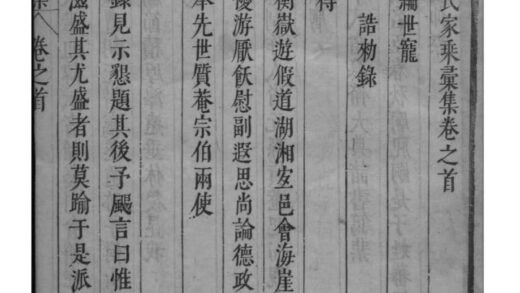 氏家乘彙集卷之首
世寵
誥勑錄
得
衡嶽遊假道湖湘邑會海崖
優游厭飫慰副遐思尚論德政
本先世質菴宗伯兩使
錄見示懇題其後予颺言曰惟
滋盛其尤盛者則莫踰于是派
集 卷之首